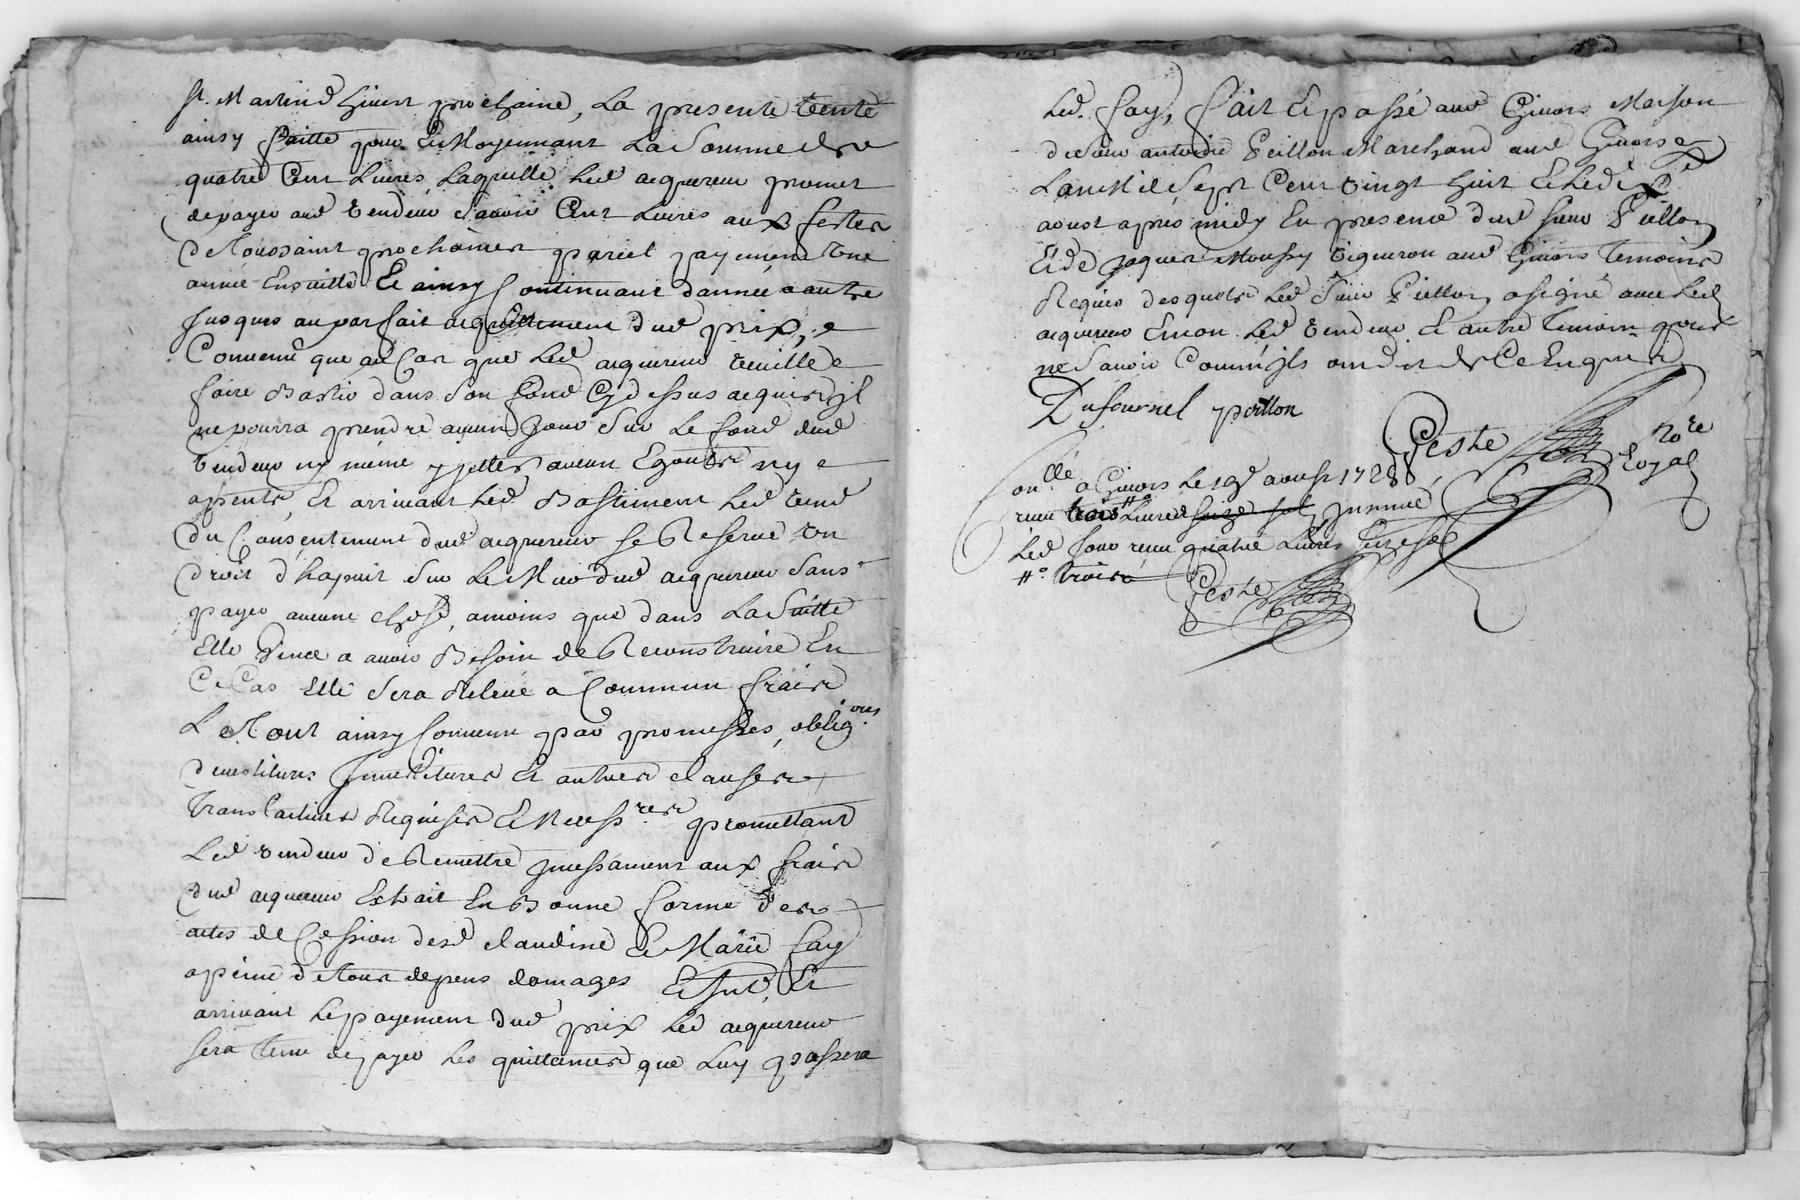 st. Martind hivert prochaine, La presente vente
ainsy faitte pour Et Moyennant La Somme de
quatre Cent Livres, Laquelle Led acquereur promet
depayer aud vendeur scavoir Cent Livres aux festes
de Toussaint prochaines pareil payement une
année Ensuitte Et ainsy Continuant dannée a autre
Jusques au parfait acquittement dud prix,
Convenu que au Cas que Led acquereur veuille
faire Bastir dans Son fond Cydessus acquis il
ne pourra prendre aucun Jour Sur Le fond dud
vendeur ny même y jetter aucun Egouts ny
apents, Et arrivant Led Bastiment Led vend
du Consentement dud acquereur se Reserve un
droit d'hapuit Sur Le Mur dud acquereur Sans
payer aucune chose, amoins que dans La Suitte
Elle vinee a avoir Besoin de Reconstruire En
Ce Cas Elle Sera Relevé a Commun frais
Le Tout ainsy Convenu par promesses, oblig.ons
devestitures Investitures Et autres clauses
Translatives Requises Et Necess.res promettant
Led vendeur de Remettre Incessament aux frais
dud acquereur Extrait En Bonne forme des
actes de Cession desd claudine Et Marie fay
a peine de Tous depens domages Et Int, Et
arrivant Le payement dud prix Led acquereur
Sera Tenu de payer Les quittances que Luy passera
Led. fay, fait Et passé aud Givors Maison
du Sieur antoine Peillon Marchand aud Givors
Lan Mil Sept Cent vingt huit Et Le dix
aoust après midy En presence dud Sieur Peillon
Et de Jaques Moussy vigneron aud Givors Temoins
Requis desquels Led Sieur Peillon a signé avec Led
acquereur Et non Led vendeur Et autre Temoin pour
ne Savoir Comm'ils ont dit de Ce Enquis
Dufournel peillon
Peste no.re Royal
Con.llé a Givors Le 19e aoust 1728
receu trois Livres seize sols
Led Jour receu quatre Livres seize sols
#o trois
Peste